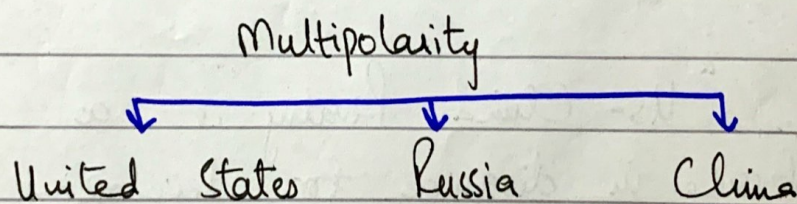 Multipolarity
United States Russia China